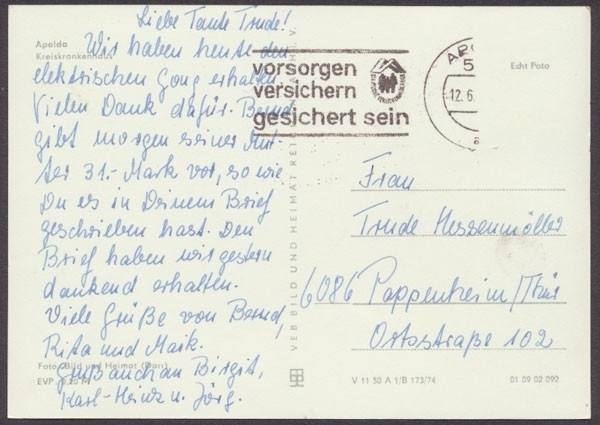 Liebe Tante Trude!
Apolda
Kreiskrankenhaus
Wir haben heute den
elektrischen Gong erhalten.
Vielen Dank dafür. Bernd
gibt morgen seiner Mut-
ter 31.- Mark vor, so wie
Du es in Deinem Brief
geschrieben hast. Den
Brief haben wir gestern
dankend erhalten.
Viele Grüße von Bernd,
Rita und Maik.
Foto: Bild und Heimat
Gruß auch an Birgit,
EVP
Karl-Heinz u. Jörg.
VEB BILD UND HEIMAT REI
V 11 50 A 1/B 173/74
01 09 02 092
vorsorgen
versichern
gesichert sein
12.6.
Echt Foto
Frau
Trude Hessenmöller
6086 Pappenheim/Thür
Ortsstraße 102